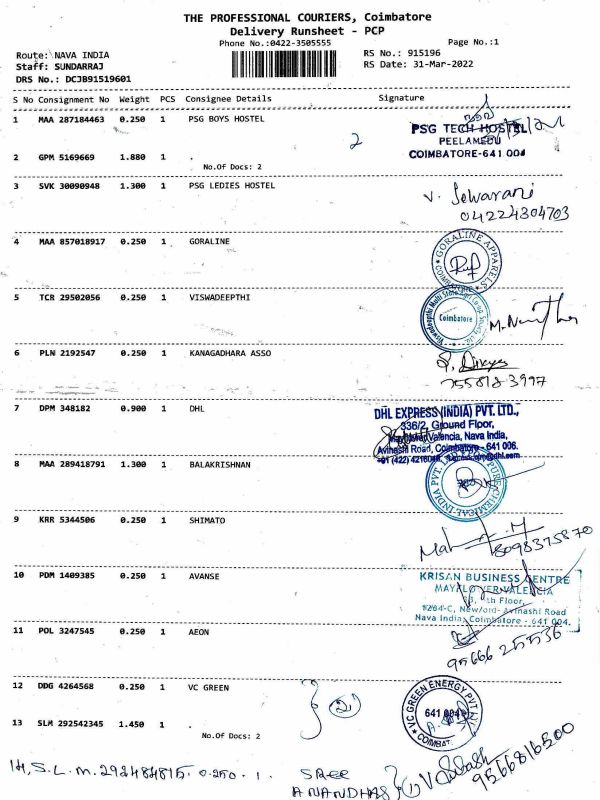 THE PROFESSIONAL COURIERS, Coimbatore
Delivery Runsheet - PCP
Phone No.:0422-3505555
Page No.:1
Route: NAVA INDIA
RS No.: 915196
Staff: SUNDARRAJ
RS Date: 31-Mar-2022
DRS No.: DCJB91519601
S No Consignment No Weight PCS Consignee Details Signature
1 MAA 287184463 0.250 1 PSG BOYS HOSTEL
PSG TECH HOSTEL
PEELAMEDU
COIMBATORE-641 004
2
2 GPM 5169669 1.880 1 .
No.Of Docs: 2
3 SVK 30090948 1.300 1 PSG LEDIES HOSTEL
V. Selvarani
04224304703
4 MAA 857018917 0.250 1 GORALINE
GORALINE APPARELS
COIMBATORE
5 TCR 29502056 0.250 1 VISWADEEPTHI
Coimbatore
6 PLN 2192547 0.250 1 KANAGADHARA ASSO
7 DPM 348182 0.900 1 DHL
DHL EXPRESS (INDIA) PVT. LTD.,
336/2, Ground Floor,
Valencia, Nava India,
Avinashi Road, Coimbatore - 641 006.
8 MAA 289418791 1.300 1 BALAKRISHNAN
9 KRR 5344506 0.250 1 SHIMATO
8098375870
10 PDM 1409385 0.250 1 AVANSE
KRISAN BUSINESS CENTRE
MAYFLOWER VALENCIA
th Floor,
Avinashi Road
Nava India, Coimbatore - 641 004.
11 POL 3247545 0.250 1 AEON
9566625536
12 DDG 4264568 0.250 1 VC GREEN
2
VC GREEN ENERGY PVT LTD
641 004
COIMBAT
13 SLM 292542345 1.450 1 .
No.Of Docs: 2
14, S.L.M. 292484815. 0.250. 1. SREE
ANANDHAS
(1)
9566816500